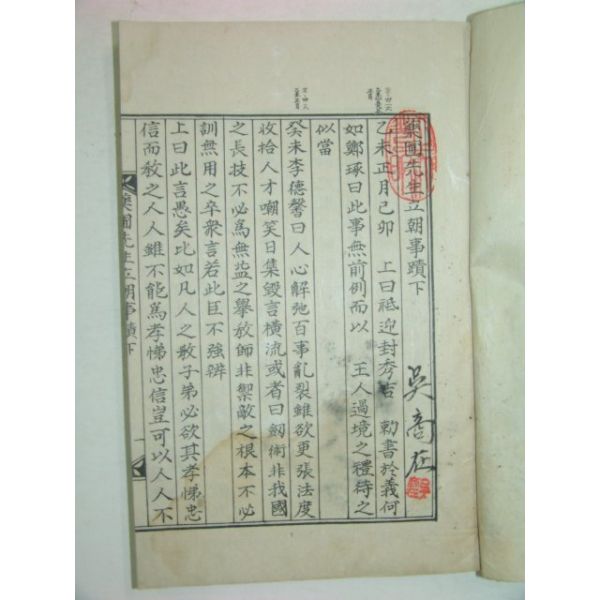 藥圃先生立朝事蹟下
乙未正月己卯 上曰祗迎封秀吉 勅書於義何
如鄭琢曰此事無前例而以 王人過境之禮待之
似當
癸未李德馨曰人心解弛百事亂裂雖欲更張法度
收拾人才嘲笑日集毀言橫流或者曰劒術非我國
之長技不必爲無益之擧敎師非禦敵之根本不必
訓無用之卒衆言若此臣不強辨
上曰此言愚矣比如凡人之敎子弟必欲其孝悌忠
信而敎之人人雖不能爲孝悌忠信豈可以人人不
藥圃先生立朝事蹟下
吳